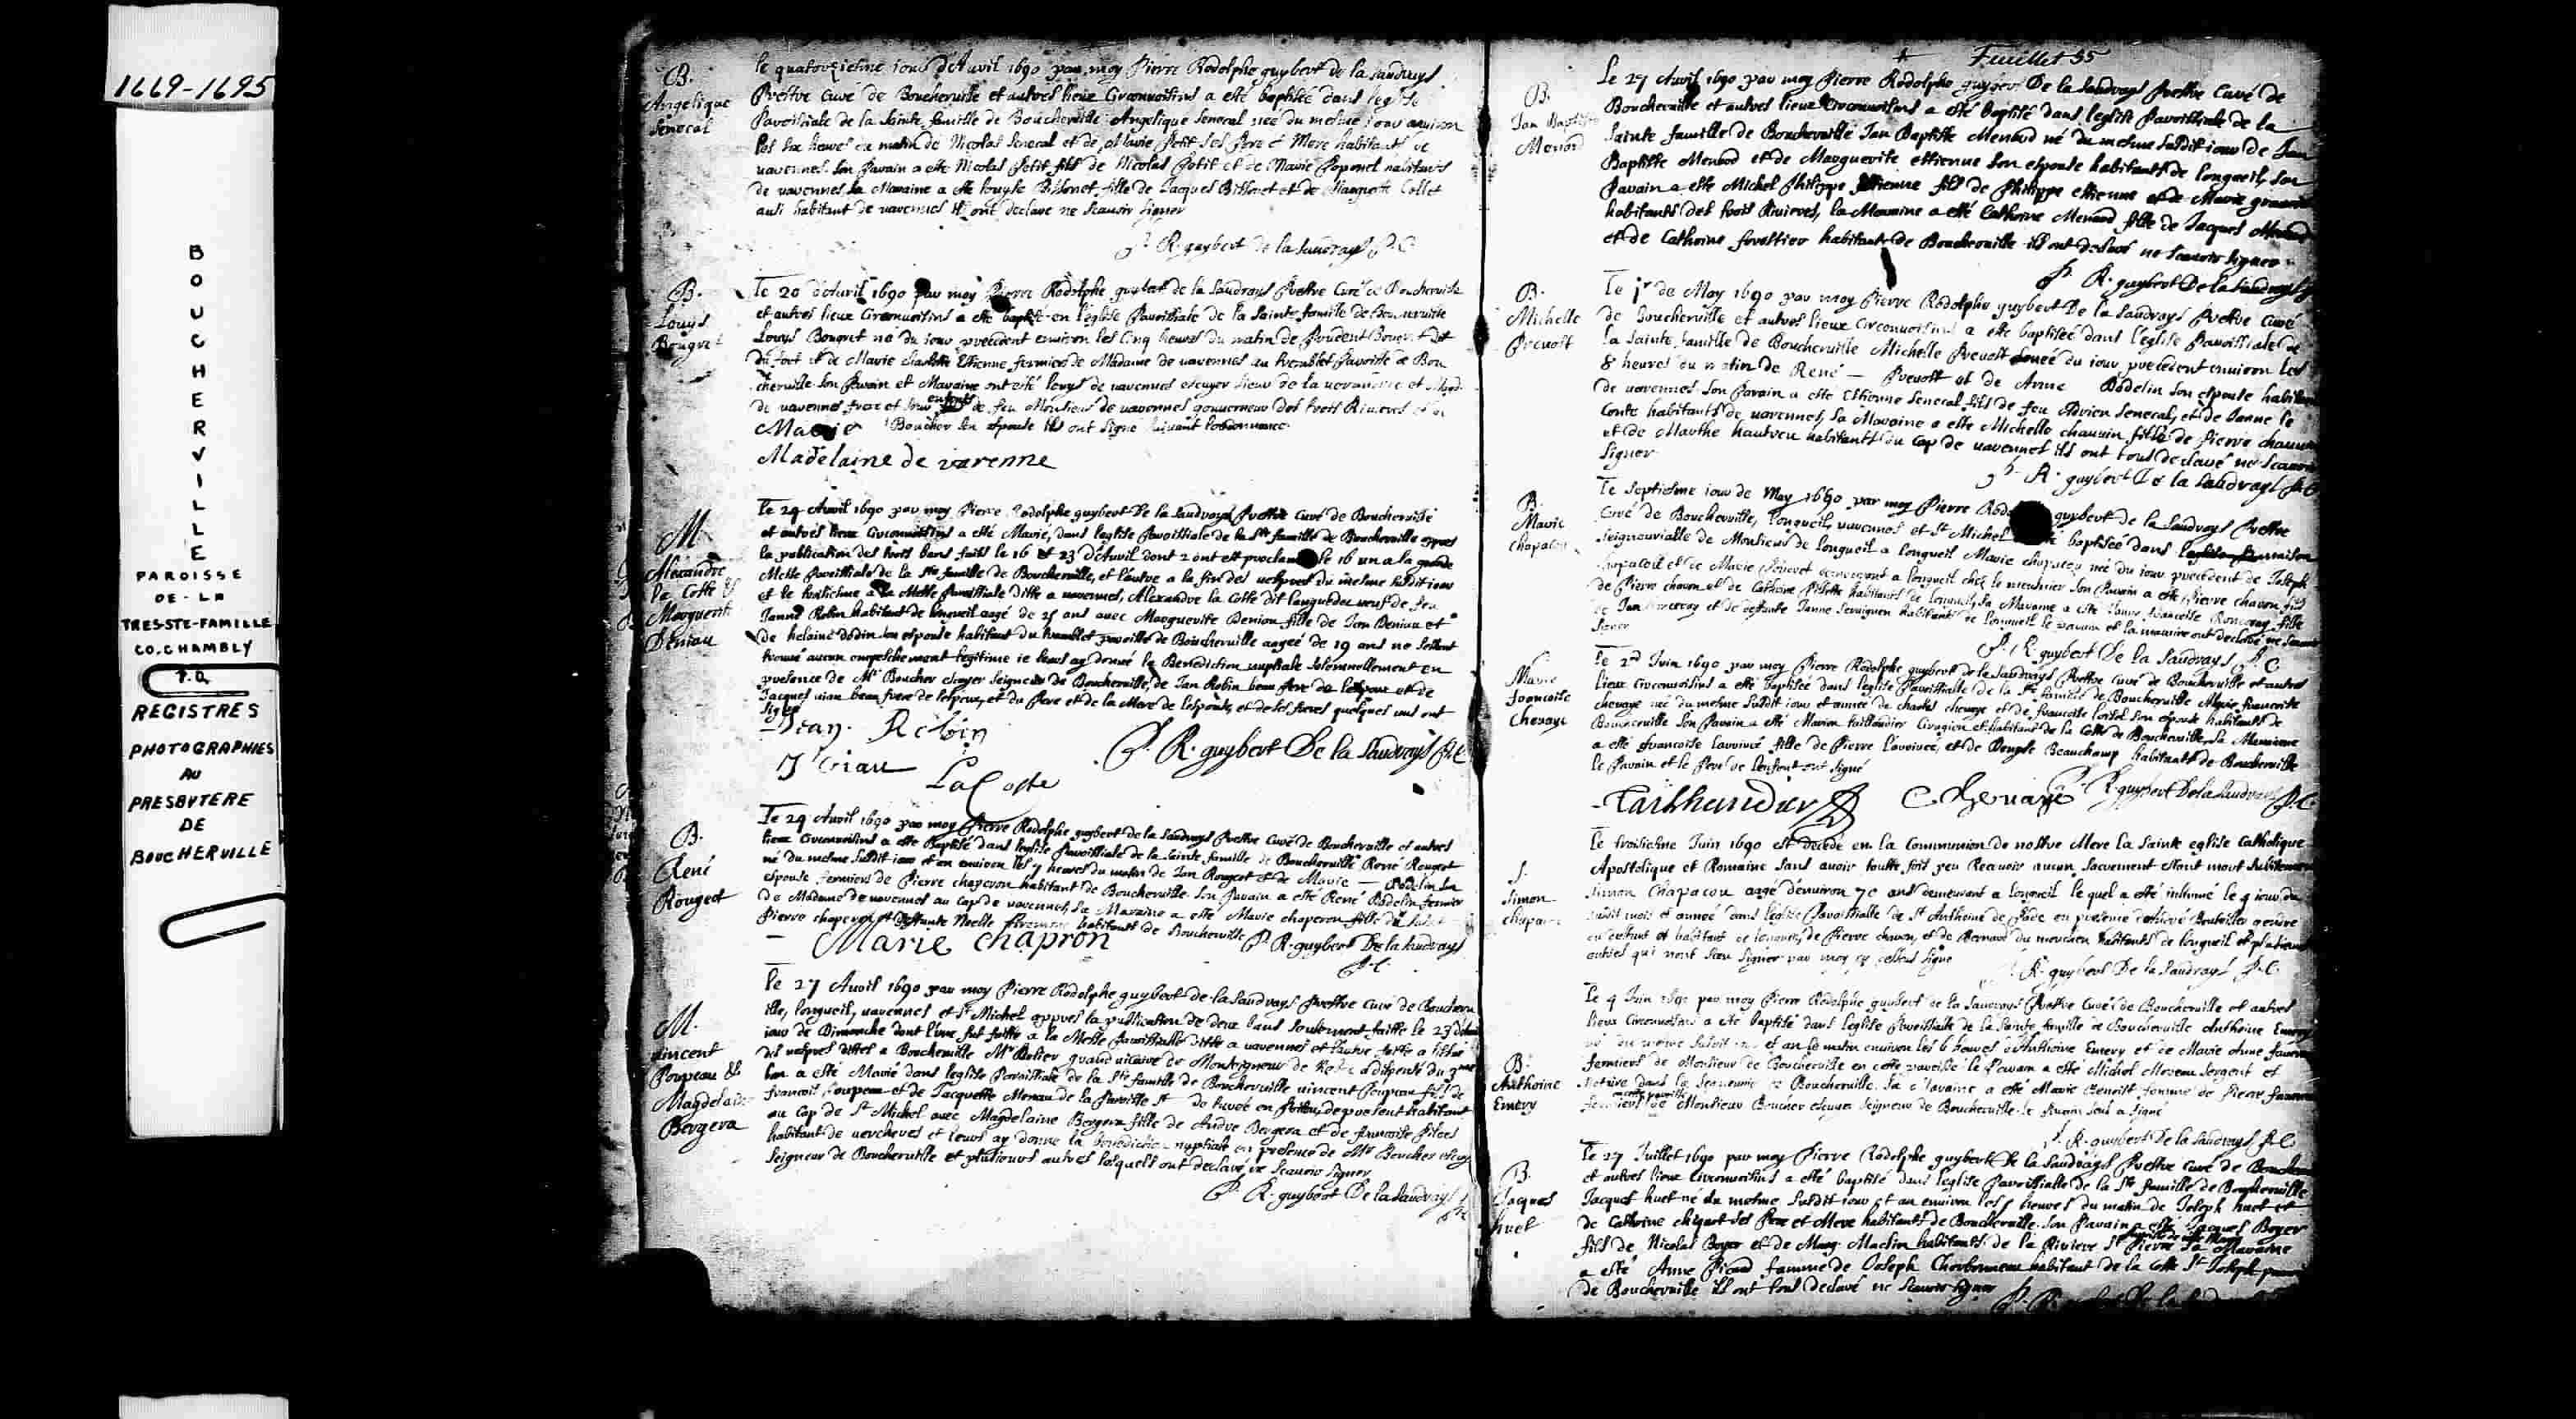 1669-1695
BOUCHERVILLE
PAROISSE
DE-LA
TRES-STE-FAMILLE
CO. CHAMBLY
P.Q.
REGISTRES
PHOTOGRAPHIES
AU
PRESBYTERE
DE
BOUCHERVILLE
B.
Angelique
Senecal
le quatorziesme iour d'Auril 1690 par moy Pierre Rodolphe guybert de la Saudrays
Prestre Curé de Boucherville et autres lieux Circonuoisins a esté baptisée dans leglise
Paroissiale de la Sainte famille de Boucherville Angelique Senecal née du mesme iour enuiron
les six heures du matin de Nicolas Senecal et de Marie Petit ses Pere & Mere habitants de
varennes. son Parain a esté Nicolas Petit fils de Nicolas Petit et de Marie Pomponel habitants
de varennes la Maraine a esté louyse Bissonet fille de Jacques Bissonet et de Margueritte Collet
ausi habitant de varennes ils ont declaré ne scauoir signer
P. R. guybert de la Saudrays P. C.
B.
Louys
Bougret
Le 20 d'Auril 1690 Par moy Pierre Rodolphe guybert de la Saudrays Prestre Curé de Boucherville
et autres lieux Circonuoisins a esté baptisé en l'eglise Paroissiale de la Sainte famille de Boucherville
Louys Bougret né du iour precedent enuiron les Cinq heures du matin de Prudent Bougret dit
du fort et de Marie charlotte Etienne fermiers de Madame de varennes au tremblet Paroisse de Bou
cherville. son Parain et Maraine ont esté louys de varennes escuyer sieur de la et
de varennes frere et soeur enfants de feu Monsieur de varennes gouuerneur des trois Riuieres et de
Marie Boucher son espouse ils ont signé suiuant l'ordonnance.
Madelaine de varenne
M
Alexandre
la Coste &
Marguerite
Deniau
Le 24 Auril 1690 par moy Pierre Rodolphe guybert De la Saudrays Prestre Curé de Boucherville
et autres lieux Circonuoisins a esté Marié, dans leglise Paroissiale de la Ste famille de Boucherville apres
la publication des trois bans faits le 16 et 23 d'Auril dont 2 ont esté proclamé le 16 un a la grande
Messe Paroissiale de la Ste famille de Boucherville, et l'autre a la fin des vespres du mesme susdit iour
et le troisiesme a la Messe Paroissiale ditte a varennes, Alexandre la Coste dit languedoc veuf de feu
Janne Robin habitant de longueil aagé de 25 ans avec Marguerite Deniau fille de Jean Deniau et
de helaine dodin son espouse habitant du tremblet paroisse de Boucherville aagée de 19 ans ne sestant
trouué aucun empeschement legitime ie leurs ay donné la Benediction nuptiale solemnellement en
presence de Mr Boucher escuyer Seigneur de Boucherville, de Jan Robin beau frere de lespoux et de
Jacques viau beau frere de lespoux, et du Pere et de la Mere de lespouse, et de ses freres quelques uns ont
signé
Jean. Robin
J Viau
LaCoste
P. R. guybert De la Saudrays P.C.
B.
René
Rougeot
Le 24 Auril 1690 par moy Pierre Rodolphe guybert de la Saudrays Prestre Curé de Boucherville et autres
lieux Circonuoisins a esté Baptisé dans leglise Paroissiale de la Sainte famille de Boucherville René Rougeot
né du mesme susdit iour et an enuiron les 7 heures du matin de Jan Rougeot et de Marie — Rodelin son
espouse fermiers de Pierre chaperon habitant de Boucherville. son Parain a esté René Rodelin fermier
de Madame de varennes au cap de varennes, la Maraine a esté Marie chaperon fille du susdit
Pierre chaperon et deffunte Noelle habitant de Boucherville
Marie chapron
P. R. guybert De la Saudrays
P.C.
M.
vincent
Poupeau &
Magdelaine
Bergera
le 27 Auril 1690 par moy Pierre Rodolphe guybert de la Saudrays Prestre Curé de Boucherv
ille, longueil, varennes et St Michel apres la publication de deux bans seulement faitte le 23
iour de Dimanche dont l'une fut faitte a la Messe Paroissialle ditte a varennes et l'autre faitte a
des vespres dittes a Boucherville Mr Dolier grand vicaire de Monseigneur de a dispensé du 3me
ban a esté Marié dans leglise Paroissiale de la Ste famille de Boucherville vincent Poupeau fils de
francois Poupeau et de Jacquette Menau de la Paroisse St en Poitou de present habitant
au Cap de St Michel avec Magdelaine Bergera fille de Andre Bergera et de francoise Pilois
habitant de vercheres et leurs ay donné la benediction nuptiale en presence de Mr Boucher
Seigneur de Boucherville et plusieurs autres lesquels ont declaré ne Scauoir signer
P. R. guybert De la Saudrays
Feuillet 55
B.
Jan Baptiste
Menard
Le 27 Auril 1690 par moy Pierre Rodolphe guybert De la Saudrays Prestre Curé de
Boucherville et autres lieux Circonuoisins a esté baptisé dans leglise Paroissiale de la
Sainte famille de Boucherville Jan Baptiste Menard né du mesme susdit iour de Jan
Baptiste Menard et de Marguerite ettienne son espouse habitants de longueil, son
Parain a esté Michel Philippe Ettienne fils de Philippe ettienne et de Marie
habitants des trois Riuieres, la Maraine a esté Catherine Menard fille de Jacques Menard
et de Catherine forestier habitants de Boucherville ils ont declaré ne scauoir signer
P. R. guybert De la Saudrays
B.
Michelle
Preuost
Le ir de May 1690 par moy Pierre Rodolphe guybert De la Saudrays Prestre Curé
de Boucherville et autres lieux Circonuoisins a esté baptisée dans l'eglise Paroissiale de
la Sainte famille de Boucherville Michelle Preuost née du iour precedent enuiron les
8 heures du matin de René — Preuost et de Anne Rodelin son espouse habitans
de varennes. son Parain a esté Ethienne Senecal fils de feu Adrien Senecal, et de Janne le
Conte habitants de varennes, sa Maraine a esté Michelle chauuin fille de Pierre chauuin
et de Marthe hautreu habitants du cap de varennes ils ont tous declaré ne scauoir
signer
P. R. guybert De la Saudrays P.C.
B.
Marie
Chapacou
Le Septiesme iour de May 1690 par moy Pierre guybert de la Saudrays Prestre
Curé de Boucherville, longueil, varennes et St Michel baptisée dans la maison
Seigneurialle de Monsieur de longueil a longueil Marie chapacou née du iour precedent de Joseph
chapacou et de Marie demeurant a longueil chez le meusnier son Parain a esté Pierre chavon fils
de Pierre chavon et de Catherine Pilette habitants de longueil, la Maraine a esté francoise Ronceray fille
de Jan Ronceray et de deffunte Janne Seruignen habitants de longueil le parain et la maraine ont declaré ne scauoir
signer
P. R. guybert De la Saudrays P. C.
Marie
francoise
Chevaye
Le 2d Juin 1690 par moy Pierre Rodolphe guybert de la Saudrays Prestre Curé de Boucherville et autres
lieux Circonuoisins a esté baptisée dans leglise Paroissiale de la Ste famille de Boucherville Marie francoise
chevaye née du mesme susdit iour et année de charles chevaye et de francoise loisel son espouse habitants de
Boucherville son Parain a esté Marien taillandier Cirugien et habitant de la Coste de Boucherville, la Maraine
a esté francoise lavoivre fille de Pierre lavoivre, et de Beauchamp habitants de Boucherville
le Parain et le Pere de lenfant ont signé
Tailhandier
Chevaye
P. R. guybert De la Saudrays P.C.
S.
Simon
chapacou
Le troisiesme Juin 1690 est decedé en la Communion de nostre Mere la Sainte eglise Catholique
Apostolique et Romaine sans auoir toutte fois peu Receuoir aucun Sacrement estant mort subitement
Simon Chapacou aagé d'enuiron 70 ans demeurant a longueil le quel a esté inhumé le 4 iour du
susdit mois et année dans l'eglise Paroissialle de St Anthoine de Pade en presence Bouteiller gendre
du deffunt et habitant de longueil, de Pierre chavon, et de Bernard du mouchen habitants de longueil et plusieurs
autres qui nont sceu signer par moy
P. R. guybert De la Saudrays P.C.
B.
Anthoine
Emery
Le 4 Juin 1690 par moy Pierre Rodolphe guybert de la Saudrays Prestre Curé de Boucherville et autres
lieux Circonuoisins a esté baptisé dans leglise Paroissiale de la Sainte famille de Boucherville Anthoine Emery
né du mesme susdit iour et an du matin enuiron les 6 heures d'Anthoine Emery et de Marie Anne
fermiers de Monsieur de Boucherville en cette paroisse le Parain a esté Michel Moreau Sergent et
Notaire dans la Seigneurie de Boucherville. la Maraine a esté Marie Benoist femme de Pierre
fermiers de Monsieur Boucher escuyer Seigneur de Boucherville le Parain seul a signé
P. R. guybert De la Saudrays P.C.
B.
Jacques
huet
Le 27 Juillet 1690 par moy Pierre Rodolphe guybert De la Saudrays Prestre Curé de Boucherville
et autres lieux Circonuoisins a esté baptisé dans leglise Paroissialle de la Ste famille de Boucherville
Jacques huet né du mesme susdit iour et an enuiron les 5 heures du matin de Joseph huet et
de Catherine chiquot ses Pere et Mere habitants de Boucherville. son Parain a esté Jacques Boyer
fils de Nicolas Boyer et de Marg. Maclin habitants de la Riviere St Pierre la Maraine
a esté Anne Picard famme de Joseph Charbonneau habitant de la Coste St Joseph
de Boucherville ils ont tous declaré ne scauoir signer